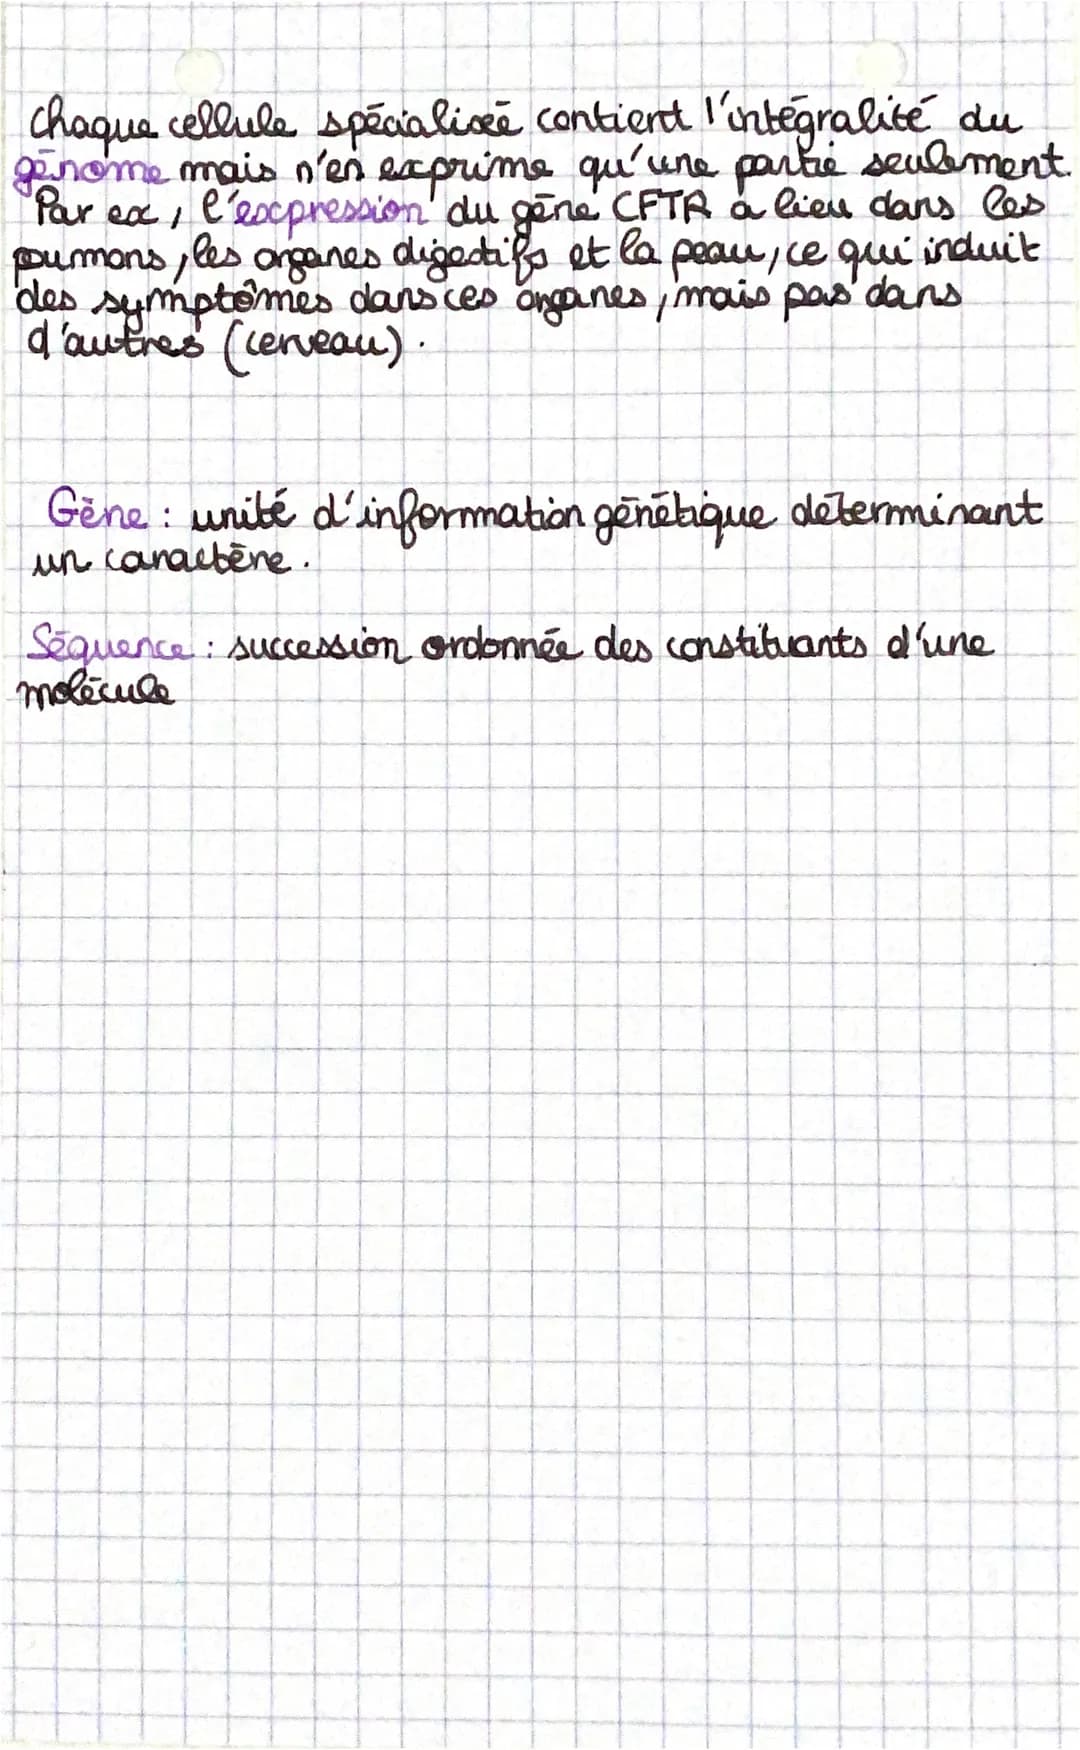 Chaque cellule spécialisée contient l'intégralité du
génome mais n'en exprime qu'une partie seulement.
Par ex, l'expression du gène CFTR a lieu dans les
poumons, les organes digestifs et la peau, ce qui induit
des symptômes dans ces organes, mais pas dans
d'autres (cerveau).
Gène : unité d'information génétique déterminant
un caractère.
Séquence : succession ordonnée des constituants d'une
molécule